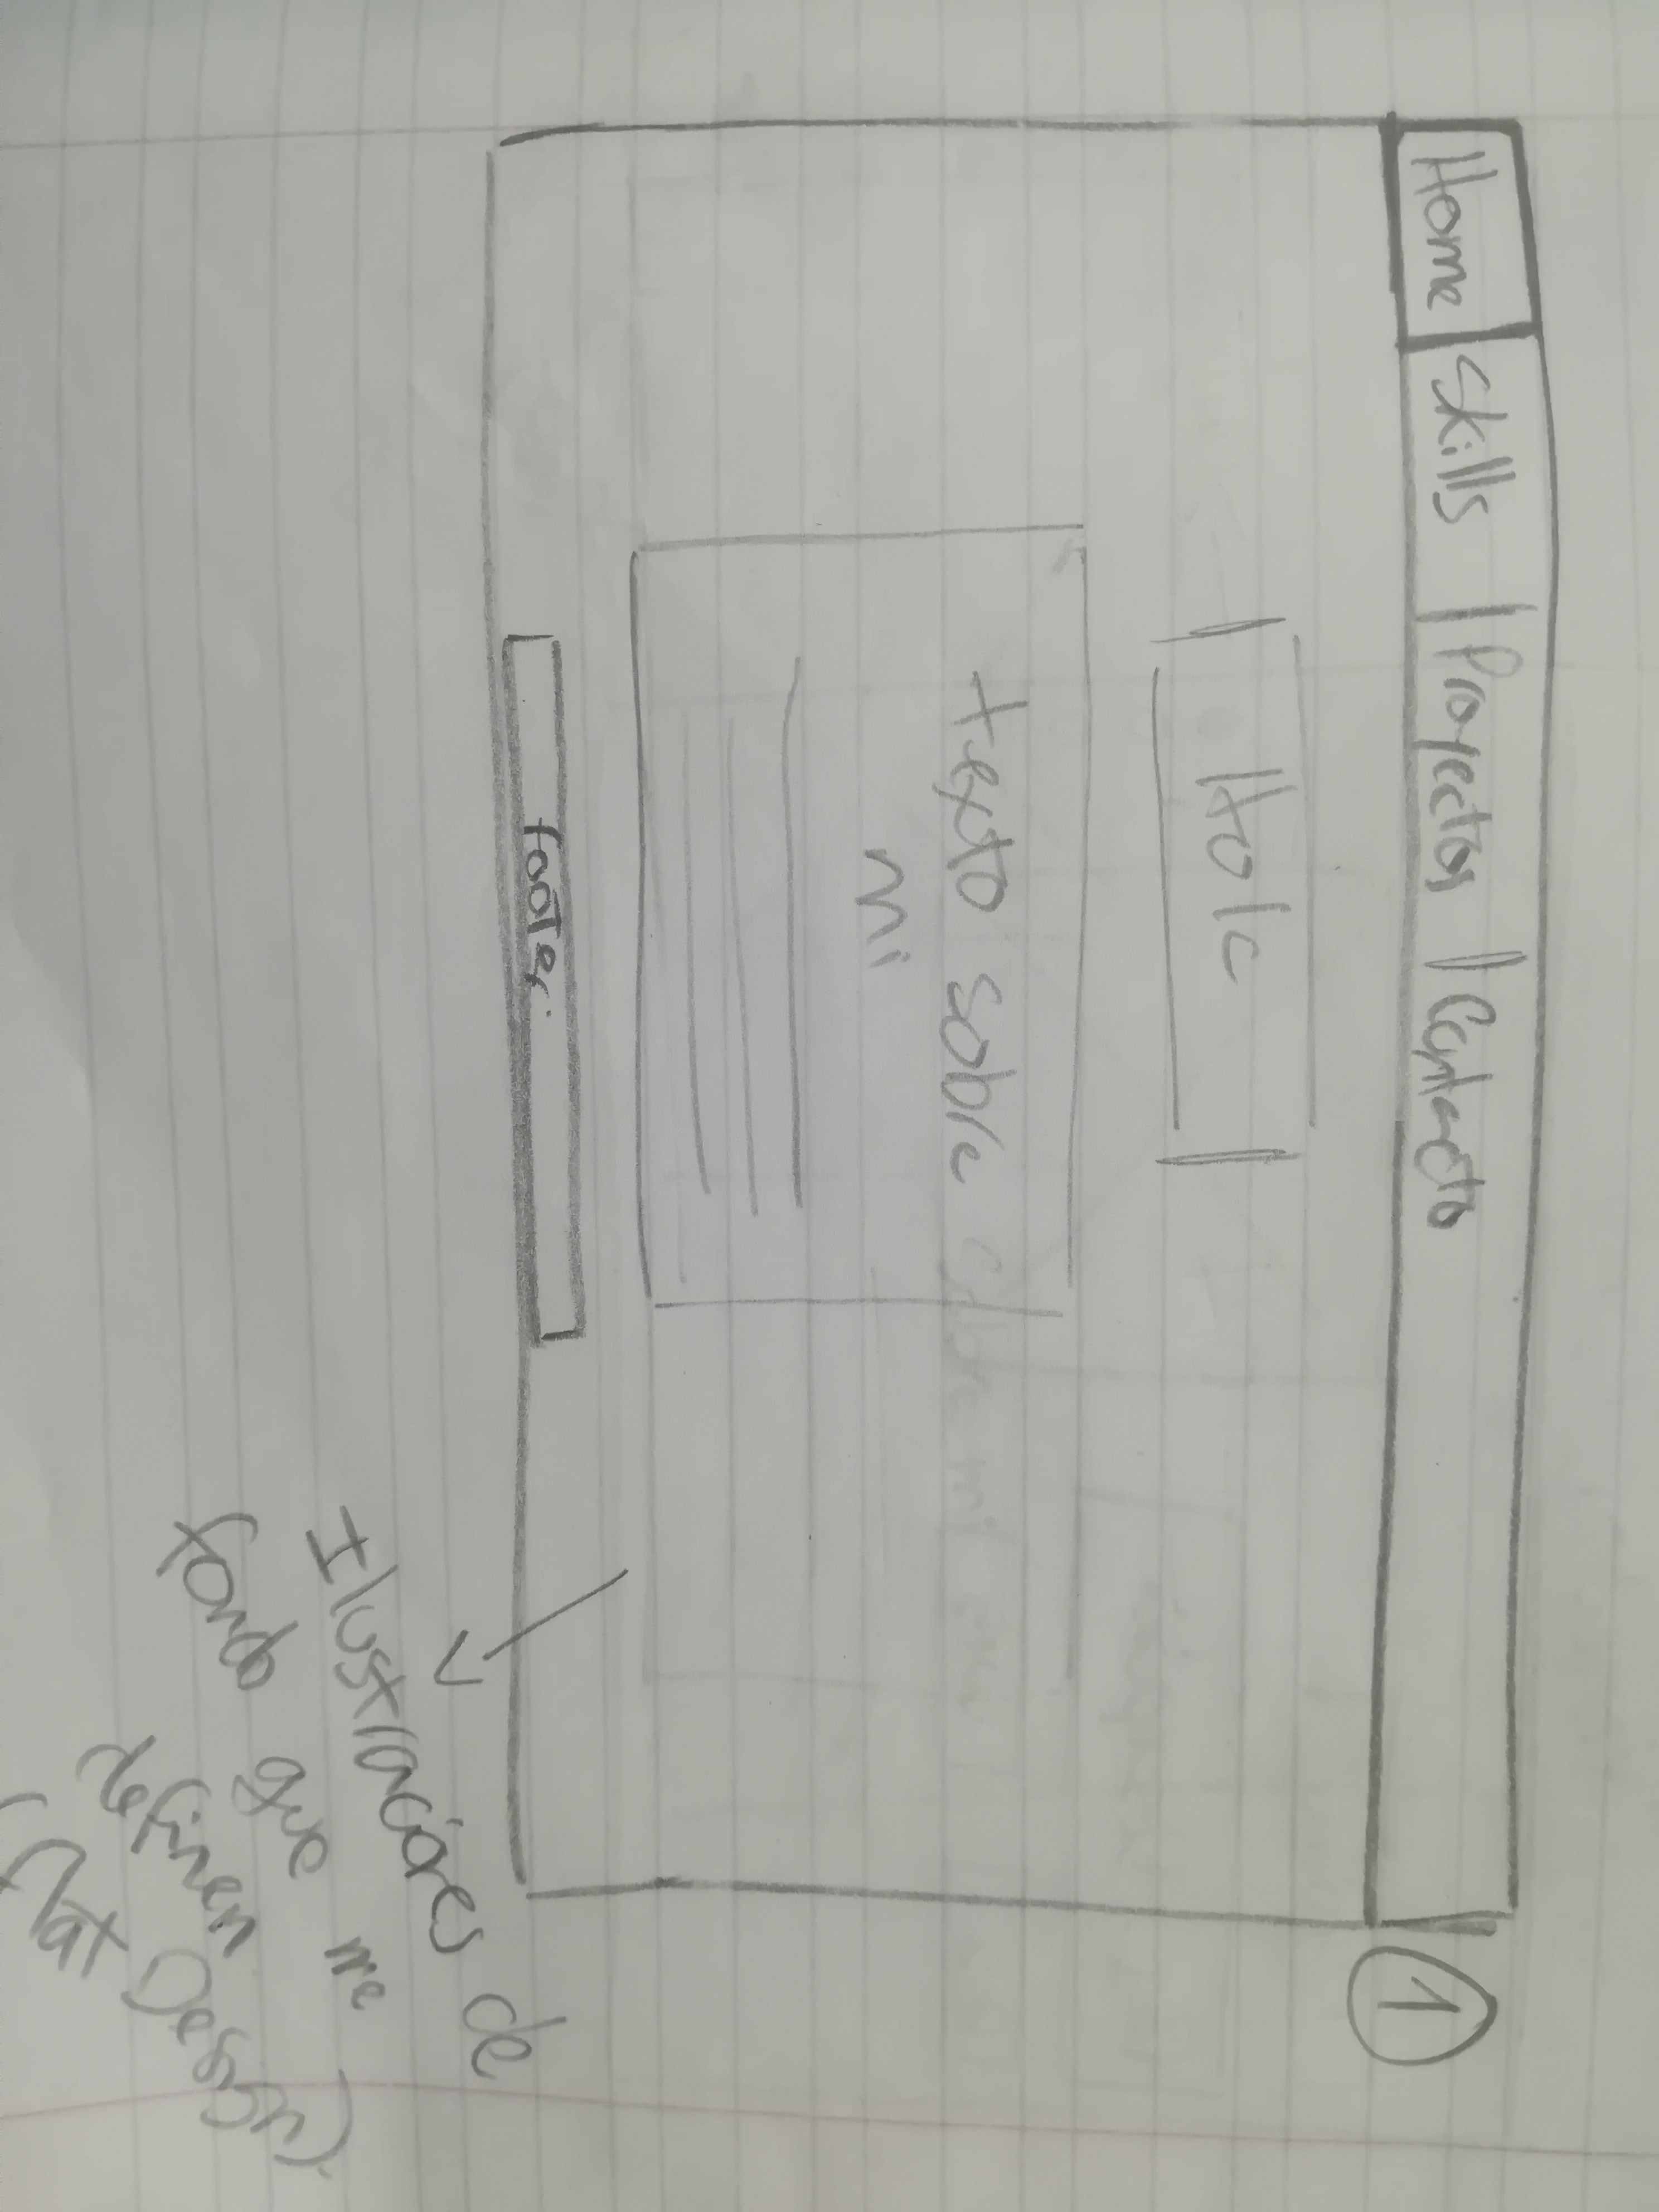 Home | Skills | Proyectos | Contacto
1
Hola
texto sobre
mi
footer.
Ilustraciones de
fondo que me
definen
(flat Design).